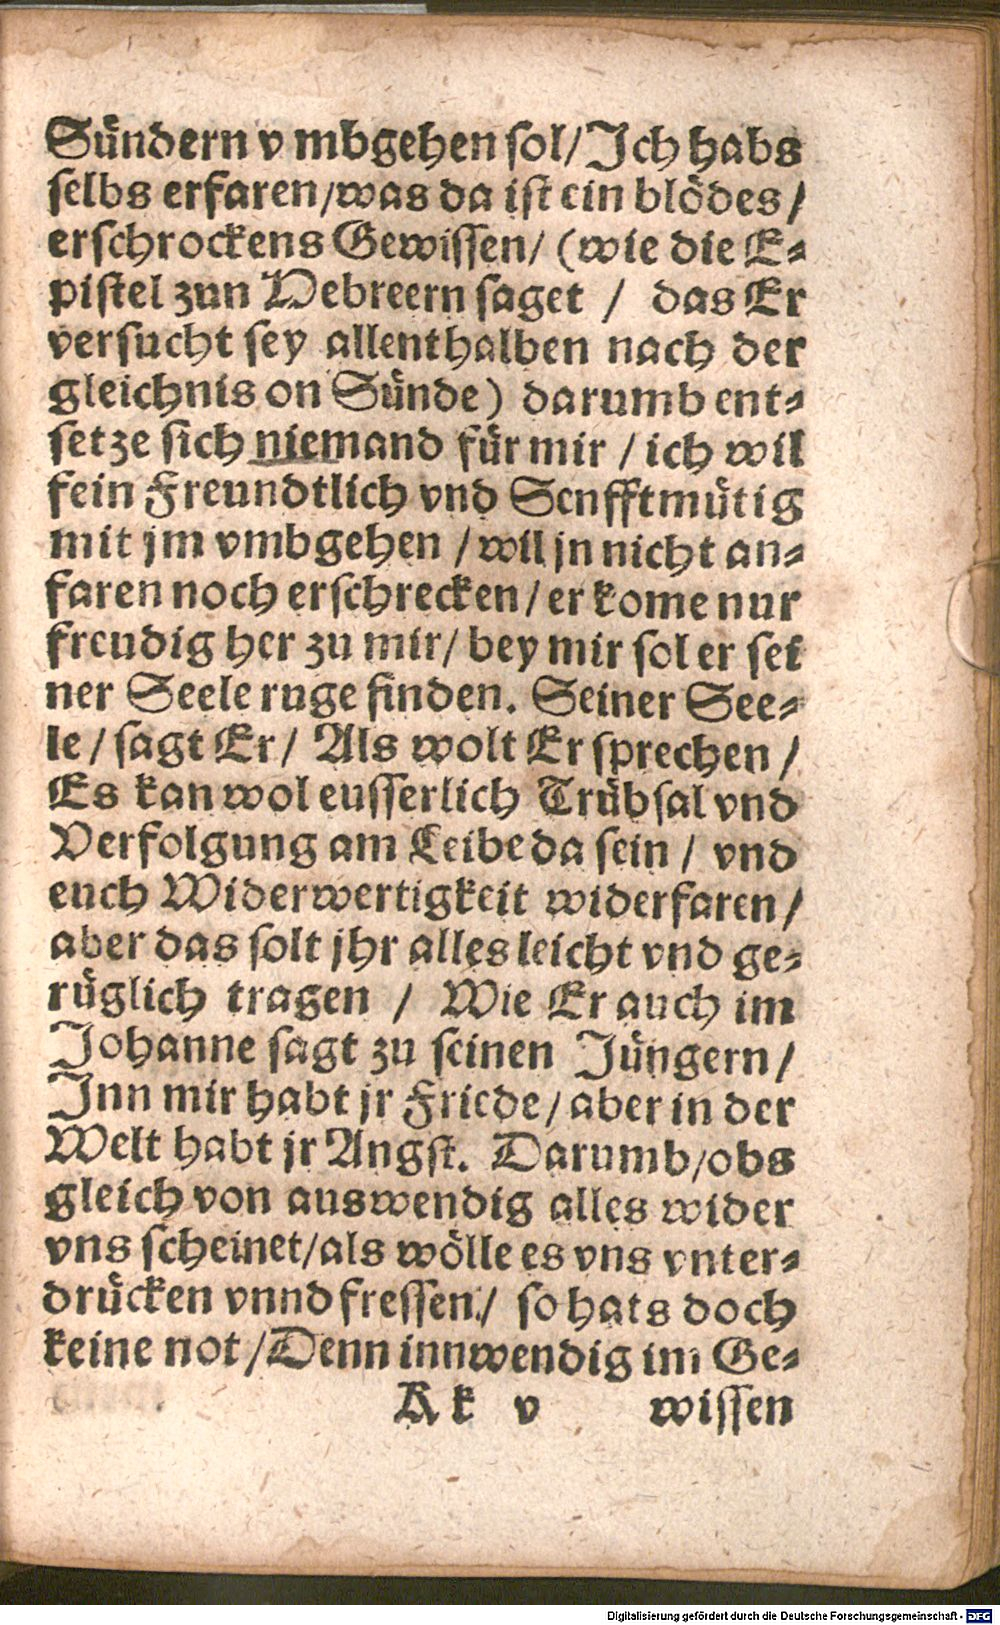 Sündern v mbgehen sol/ Ich habs
selbs erfaren/was da ist ein blödes/
erschrockens Gewissen/ (wie die E⸗
pistel zun Hebreern saget / das Er
versucht sey allenthalben nach der
gleichnis on Sünde) darumb ent⸗
setze sich niemand für mir / ich wil
fein Freundtlich vnd Senfftmütig
mit jm vmbgehen / wil jn nicht an⸗
faren noch erschrecken/ er kome nur
freudig her zu mir/ bey mir sol er sei
ner Seele ruge finden. Seiner See⸗
le / sagt Er/ Als wolt Er sprechen /
Es kan wol eusserlich Trübsal vnd
Verfolgung am Leibe da sein / vnd
euch Widerwertigkeit widerfaren/
aber das solt jhr alles leicht vnd ge⸗
rüglich tragen / Wie Er auch im
Johanne sagt zu seinen Jüngern/
Inn mir habt jr Friede/ aber in der
Welt habt jr Angst. Darumb/obs
gleich von auswendig alles wider
vns scheinet/als wölle es vns vnter⸗
drücken vnnd fressen/ so hats doch
keine not /Denn innwendig im Ge⸗
Kk v wissen
Digitalisierung gefördert durch die Deutsche Forschungsgemeinschaft - DFG